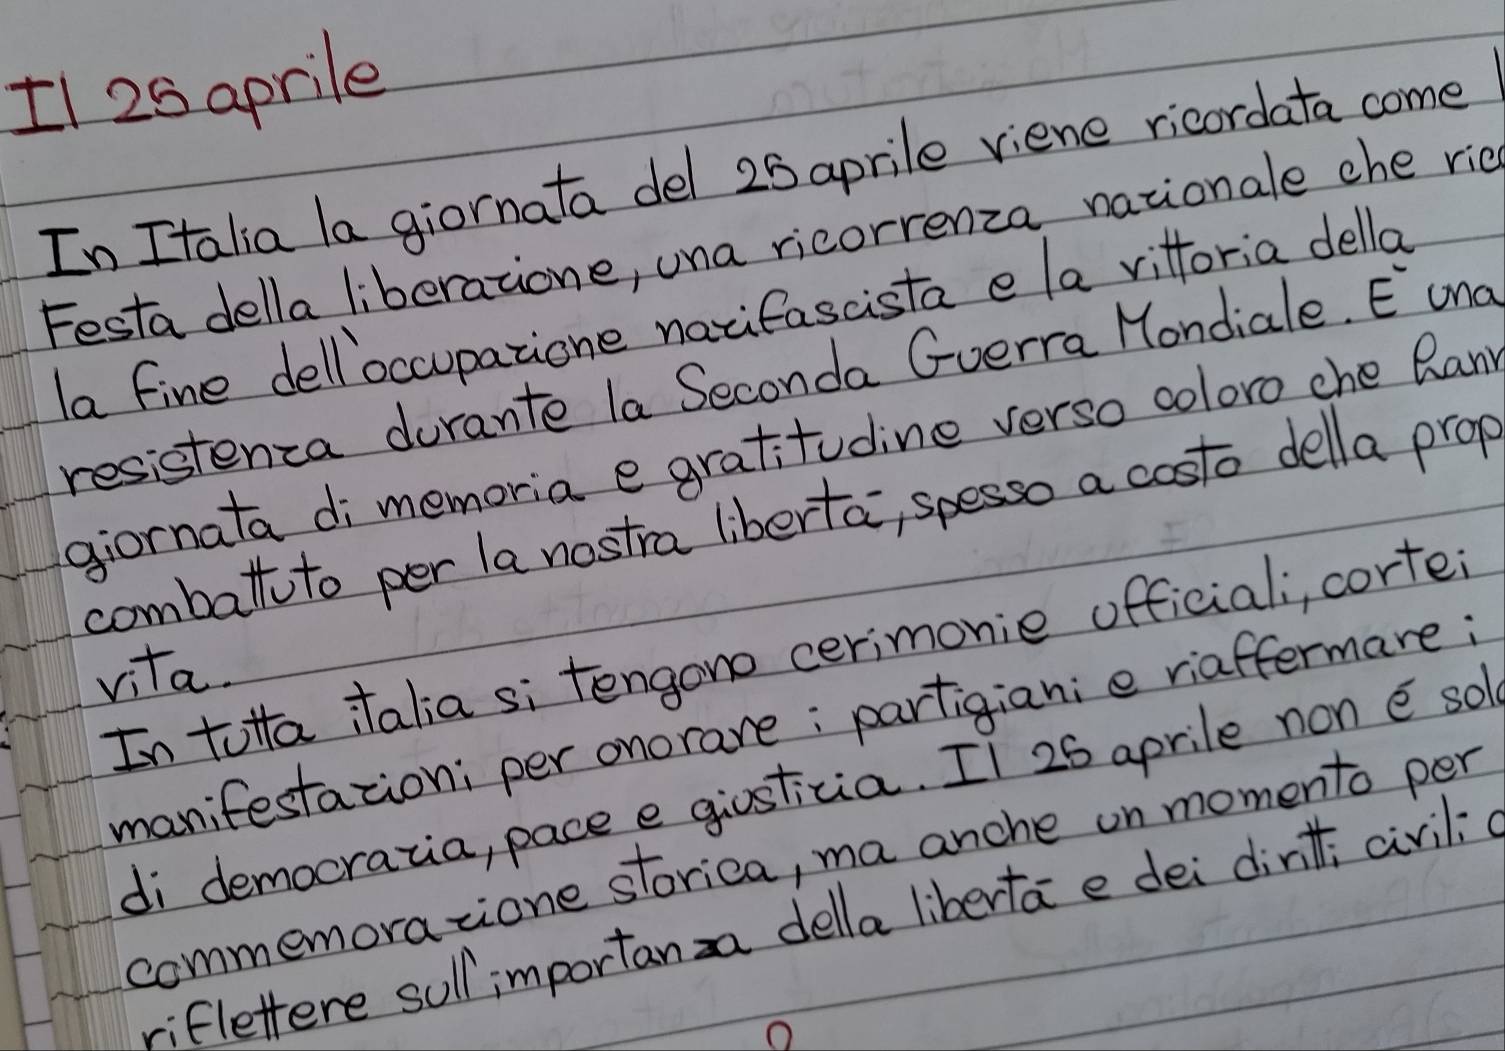 Il 25 aprile
In Italia la giornata del 25 aprile viene ricordata come l
Festa della liberazione, una ricorrenza nazionale che ric
la fine dell'occupazione nazifascista e la vittoria della
resistenza durante la Seconda Guerra Mondiale. È una
giornata di memoria e gratitudine verso coloro che hann
combattuto per la nostra libertà, spesso a costo della prop
vita.
In tutta italia si tengono cerimonie ufficiali, cortei
manifestazioni per onorare i partigiani e riaffermare i
di democrazia, pace e giustizia. Il 25 aprile non é solo
commemorazione storica, ma anche un momento per
riflettere sull'importanza della libertà e dei diritti civili